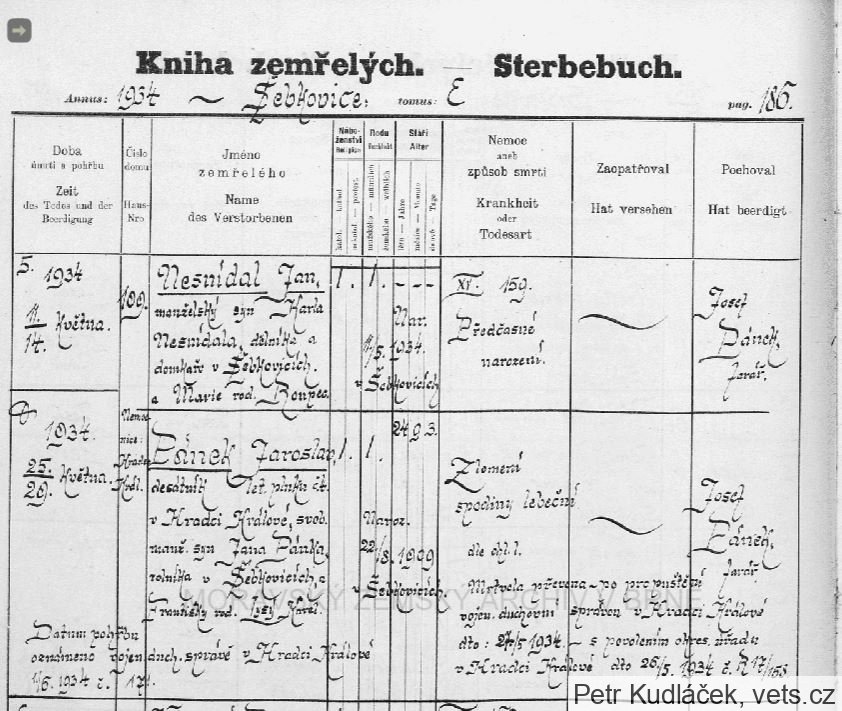 Kniha zemřelých. — Sterbebuch.
Annus: 1934 ~ Šebkovice. tomus: E pag. 186.
Doba
úmrtí a pohřbu
Zeit
des Todes und der
Beerdigung
Číslo
domu
Haus-
Nro
Jméno
zemřelého
Name
des Verstorbenen
Nábo-
ženství
Religion
Rodu
Stáří
Alter
Nemoc
aneb
způsob smrti
Krankheit
oder
Todesart
Zaopatřoval
Hat versehen
Pochoval
Hat beerdigt
5. 1934
11./14. Května.
109.
Nesnídal Jan,
manželský syn Karla
Nesnídala, dělníka a
domkaře v Šebkovicích.
a Marie rod.
1. 1. - - -
Nar.
11/5. 1934.
v Šebkovicích
XI. 159.
Předčasné
narození.
Josef
Pánek,
farář.
6
1934.
25./29. Května.
Nemoc-
nice:
Hradec
Král.
Pánek Jaroslav,
desátník let. pluku č. 4.
v Hradci Králové, svob.
manž. syn Jana Pánka,
rolníka v Šebkovicích, a
Františky rod.
1. 1. 24 9 3.
Naroz.
22/8. 1909
v Šebkovicích.
Zlomení
spodiny lebeční
dle chl. l.
Josef
Pánek,
farář.
Mrtvola převezena po propuštění
vojen. duchovní správou v Hradci Králové
dto: 27/5 1934. – s povolením okres. úřadu
v Hradci Králové dto 26/5. 1934 č.
Datum pohřbu
oznámeno vojen. duch. správě v Hradci Králové
1/6. 1934 č. 171.
MORAVSKÝ ZEMSKÝ ARCHIV V BRNĚ
Petr Kudláček, vets.cz